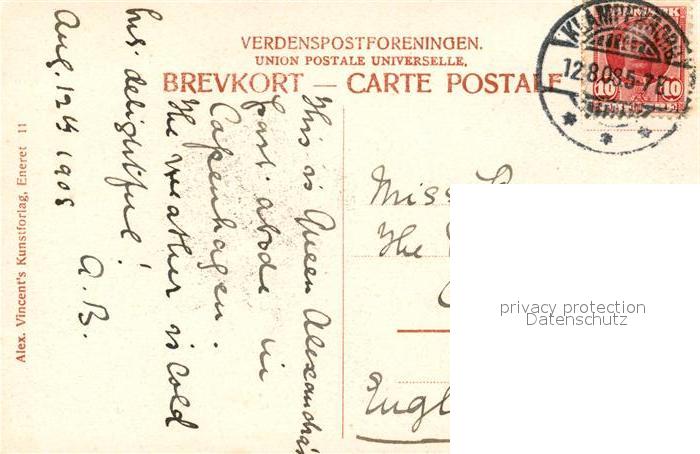 VERDENSPOSTFORENINGEN.
UNION POSTALE UNIVERSELLE,
BREVKORT — CARTE POSTALE
KLAMPENBORG
12.8.08.5-7E
10 10
This is Queen Alexandra's
part abode in
Copenhagen.
The weather is cold
but delightful!
A.B.
Aug. 12th 1908
Miss
The
Engl
privacy protection
Datenschutz
Alex. Vincent's Kunstforlag, Eneret 11